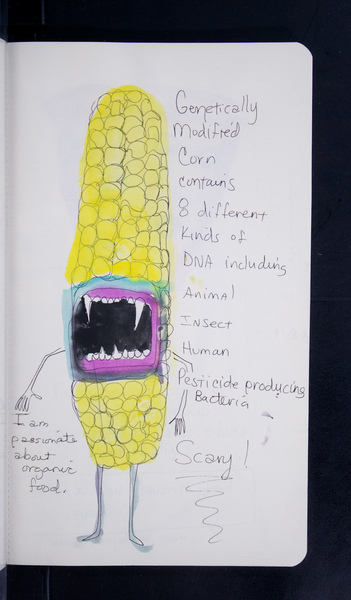 Genetically
Modified
Corn
contains
8 different
kinds of
DNA including
Animal
Insect
Human
Pesticide producing
Bacteria
Scary!
I am
passionate
about
organic
food.